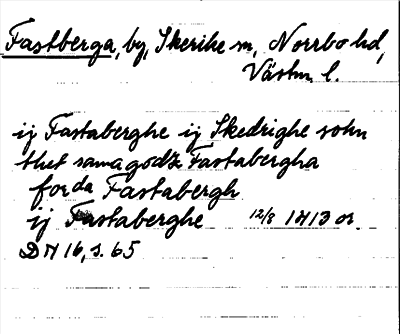 Fastberga, by, Skerike sn, Norrbo hd,
Västm. l.
ij Fastaberghe ij Skedrighe sokn
thet sama godz Fastabergha
forda Fastabergh
ij Fastaberghe 12/8 1413 or.
DN 16, s. 65